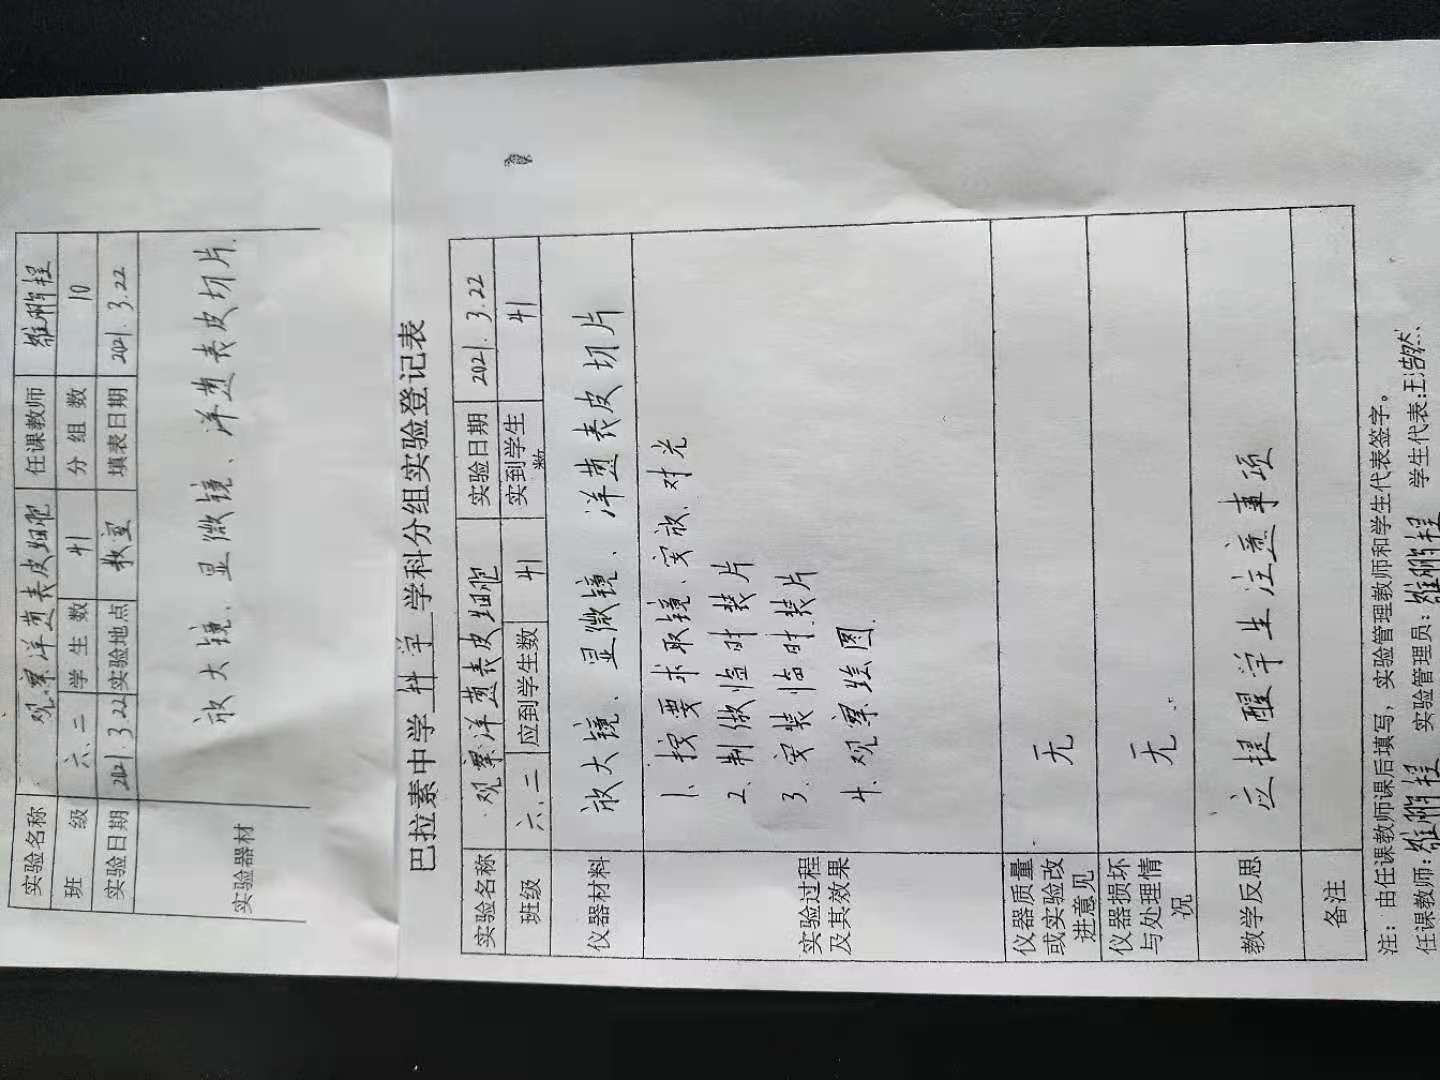 实验名称 观察洋葱表皮细胞 任课教师 雒鹏程
班 级 六、二 学 生 数 41 分 组 数 10
实验日期 2021.3.22 实验地点 教室 填表日期 2021.3.22
实验器材 放大镜、显微镜、洋葱表皮切片.
巴拉素中学 科学 学科分组实验登记表
实验名称 观察洋葱表皮细胞 实验日期 2021.3.22
班级 六、二 应到学生数 41 实到学生数 41
仪器材料 放大镜、显微镜、洋葱表皮切片
实验过程及其效果
1、按要求取镜、安放、对光
2、制做临时装片
3、安装临时装片
4、观察绘图.
仪器质量或实验改进意见 无
仪器损坏与处理情况 无
教学反思 应提醒学生注意事项
备注
注：由任课教师课后填写，实验管理教师和学生代表签字。
任课教师:雒鹏程 实验管理员:雒鹏程 学生代表:王浩然